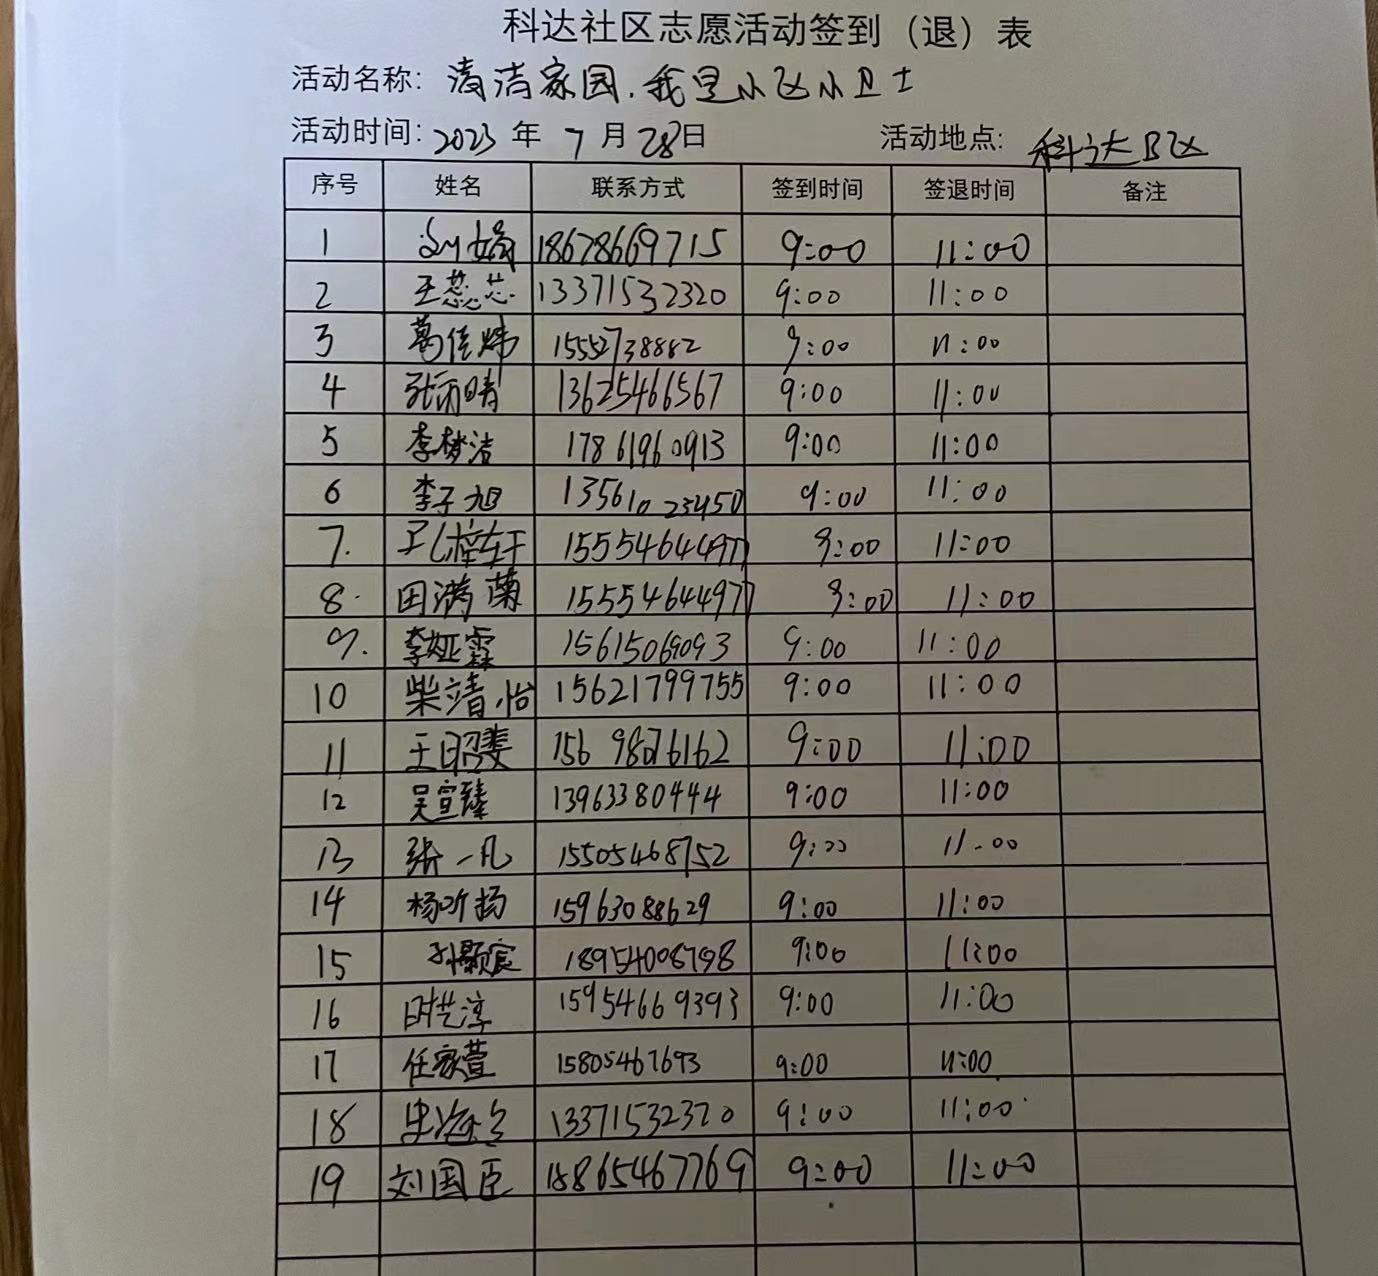 科达社区志愿活动签到（退）表
活动名称: 清洁家园.我是小区小卫士
活动时间: 2023 年 7 月 28日 活动地点: 科达B区
序号 姓名 联系方式 签到时间 签退时间 备注
1 刘娟 18678669715 9:00 11:00
2 王蕊芯 13371532320 9:00 11:00
3 葛佳炜 15552738882 9:00 11:00
4 张雨晴 13625466567 9:00 11:00
5 李梦洁 17861960913 9:00 11:00
6 李子旭 13561023450 9:00 11:00
7. 15554644977 9:00 11:00
8. 田满菊 15554644977 9:00 11:00
9. 李娅霖 15615069093 9:00 11:00
10 柴靖怡 15621799755 9:00 11:00
11 王昭雯 156 9:00 11:00
12 吴宣臻 13963380444 9:00 11:00
13 张一凡 15505468752 9:00 11:00
14 杨昕扬 15963088629 9:00 11:00
15 孙颢宸 18954008798 9:00 11:00
16 时艺淳 15954669393 9:00 11:00
17 任家萱 15805467693 9:00 11:00
18 13371532320 9:00 11:00
19 刘国臣 15865467769 9:00 11:00